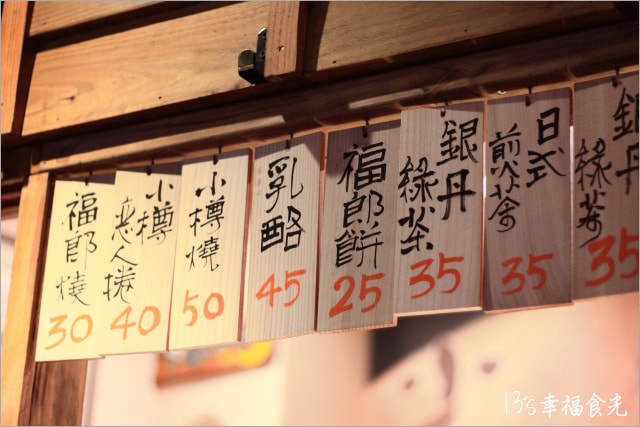 福郎燒
30
小樽
恋人捲
40
小樽燒
50
乳酪
45
福郎餅
25
銀丹
綠茶
35
日式
煎茶
35
銀丹
綠茶
35
13's幸福食光